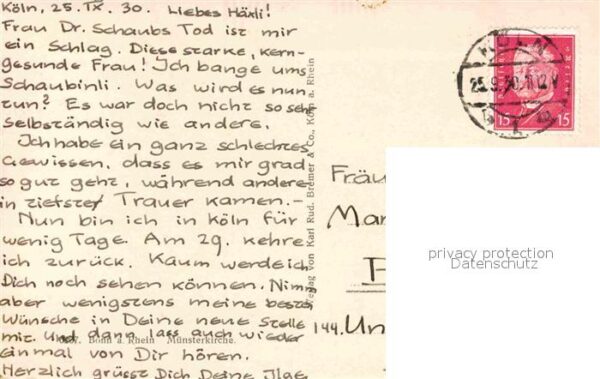 Köln, 25. IX. 30. Liebes Häxli!
Frau Dr. Schaubs Tod ist mir
ein Schlag. Diese starke, kern-
gesunde Frau! Ich bange ums
Schaubinli. Was wird es nun
tun? Es war doch nicht so sehr
selbständig wie andere.
Ich habe ein ganz schlechtes
Gewissen, dass es mir grad
so gut geht, während andere
in tiefster Trauer kamen.-
Nun bin ich in Köln für
wenig Tage. Am 29. kehre
ich zurück. Kaum werde ich
Dich noch sehen können. Nimm
aber wenigstens meine besten
Wünsche in Deine neue Stelle
mit. Und dann lass auch wieder
einmal von Dir hören.
Herzlich grüsst Dich Deine Ilge
Bonn a. Rhein Münsterkirche.
Verlag von Karl Rud. Bremer & Co., Köln a. Rhein
KÖLN
25.9.30.11-12V
15 15
Fräu
Mar
144. Un
privacy protection
Datenschutz